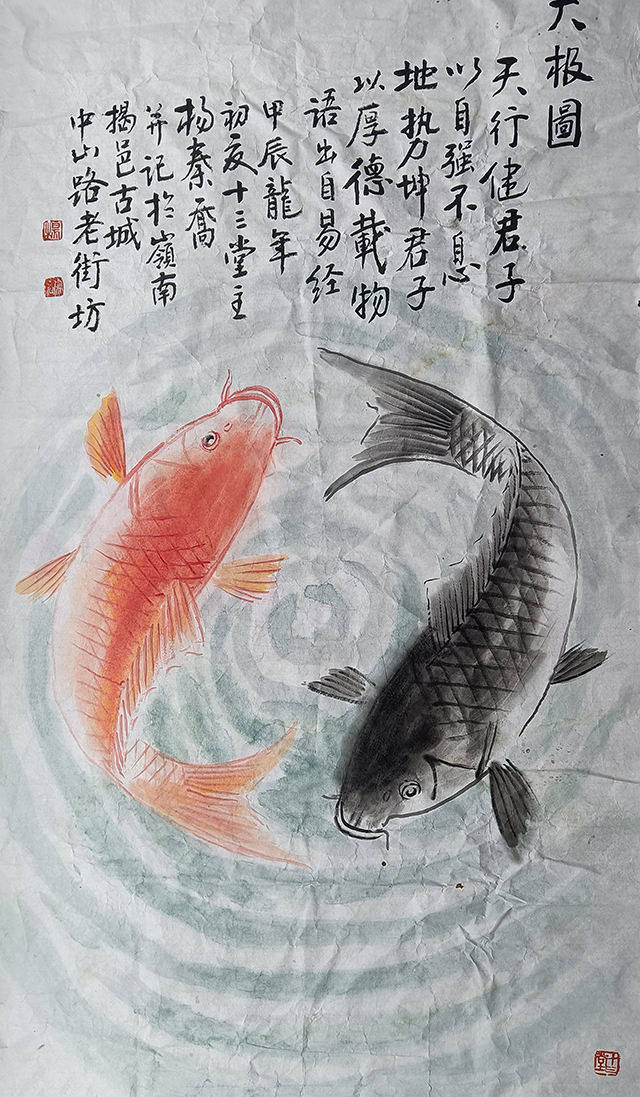 太极圖
天行健君子
以自强不息
地势坤君子
以厚德載物
语出自易经
甲辰龍年
初夏十三堂主
杨秦喬
并记於嶺南
揭邑古城
中山路老街坊